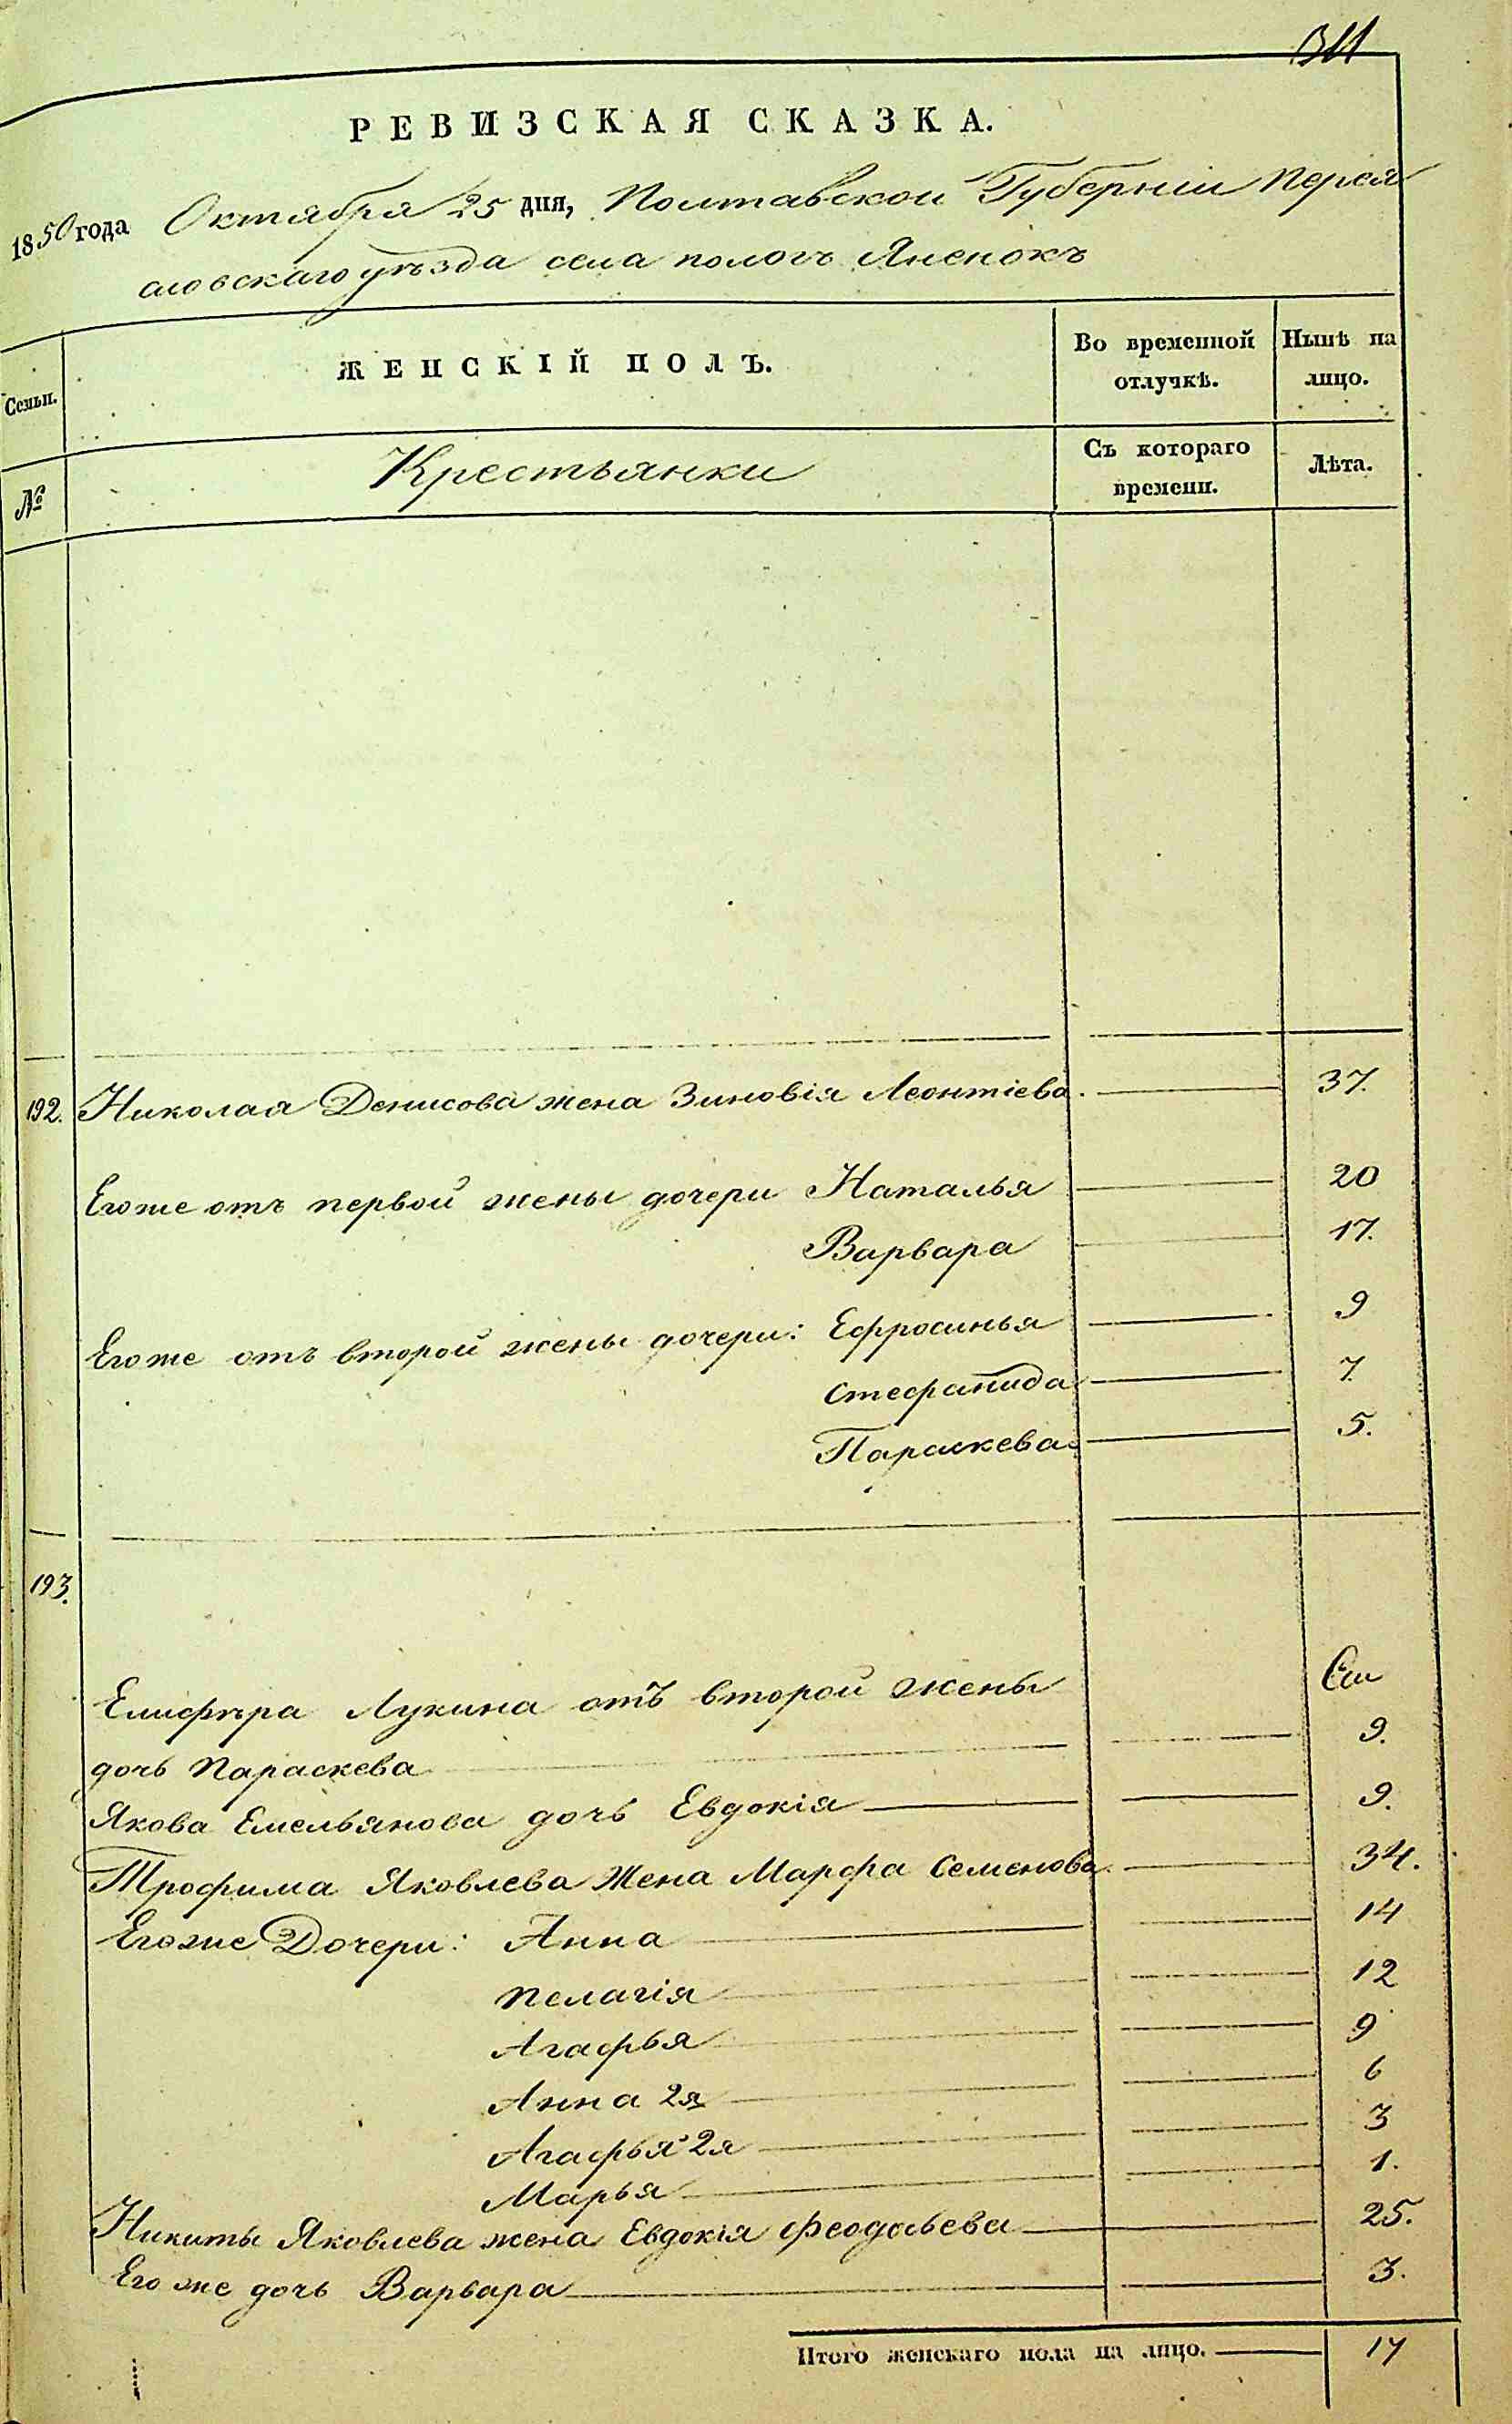 311
РЕВИЗСКАЯ СКАЗКА.
1850 года Октября 25 дня, Полтавской Губерніи Перея
словскаго уѣзда села пологъ Яненокъ
Семьи.
ЖЕНСКІЙ ПОЛЪ.
Во временной отлучкѣ.
Нынѣ на лицо.
№
Крестьянки
Съ котораго времени.
Лѣта.
192. Николая Денисова жена Зиновія Леонтіева. 37.
Егоже отъ первой жены дочери Наталья 20
Варвара 17.
Егоже отъ второй жены дочери: Ефросинья 9
Стефанида 7.
Параскева 5.
193.
Елифѣра Лукина отъ второй жены
дочь Параскева 9.
Якова Емельянова дочь Евдокія 9.
Трофима Яковлева Жена Марфа Семенова. 34.
Егоже Дочери: Анна 14
Пелагія 12
Агафья 9
Анна 2я 6
Агафья 2я 3
Марья 1.
Никиты Яковлева жена Евдокія Феодосьева 25.
Его же дочь Варвара 3.
Итого женскаго пола на лицо. 17